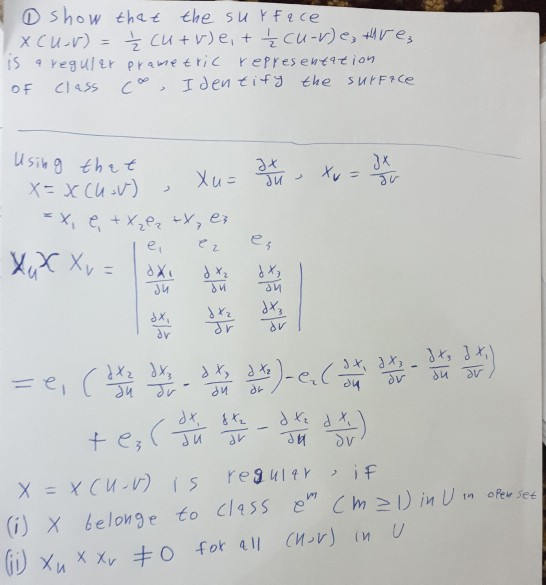 ① Show that the surface
x(u,v) = 1/2 (u+v) e₁ + 1/2 (u-v) e₃ + uv e₃
is a regular prametric representation
of class C^∞, Identify the surface
Using that
x = x(u,v) , xᵤ = ∂x/∂u , xᵥ = ∂x/∂v
= x₁ e₁ + x₂ e₂ + x₃ e₃
e₁ e₂ e₃
xᵤ × xᵥ = | ∂x₁/∂u ∂x₂/∂u ∂x₃/∂u |
| ∂x₁/∂v ∂x₂/∂v ∂x₃/∂v |
= e₁ ( ∂x₂/∂u ∂x₃/∂v - ∂x₃/∂u ∂x₂/∂v ) - e₂ ( ∂x₁/∂u ∂x₃/∂v - ∂x₃/∂u ∂x₁/∂v )
+ e₃ ( ∂x₁/∂u ∂x₂/∂v - ∂x₂/∂u ∂x₁/∂v )
x = x(u,v) is regular , if
(i) x belonge to class e^m (m ≥ 1) in U in open set
(ii) xᵤ × xᵥ ≠ 0 for all (u,v) in U